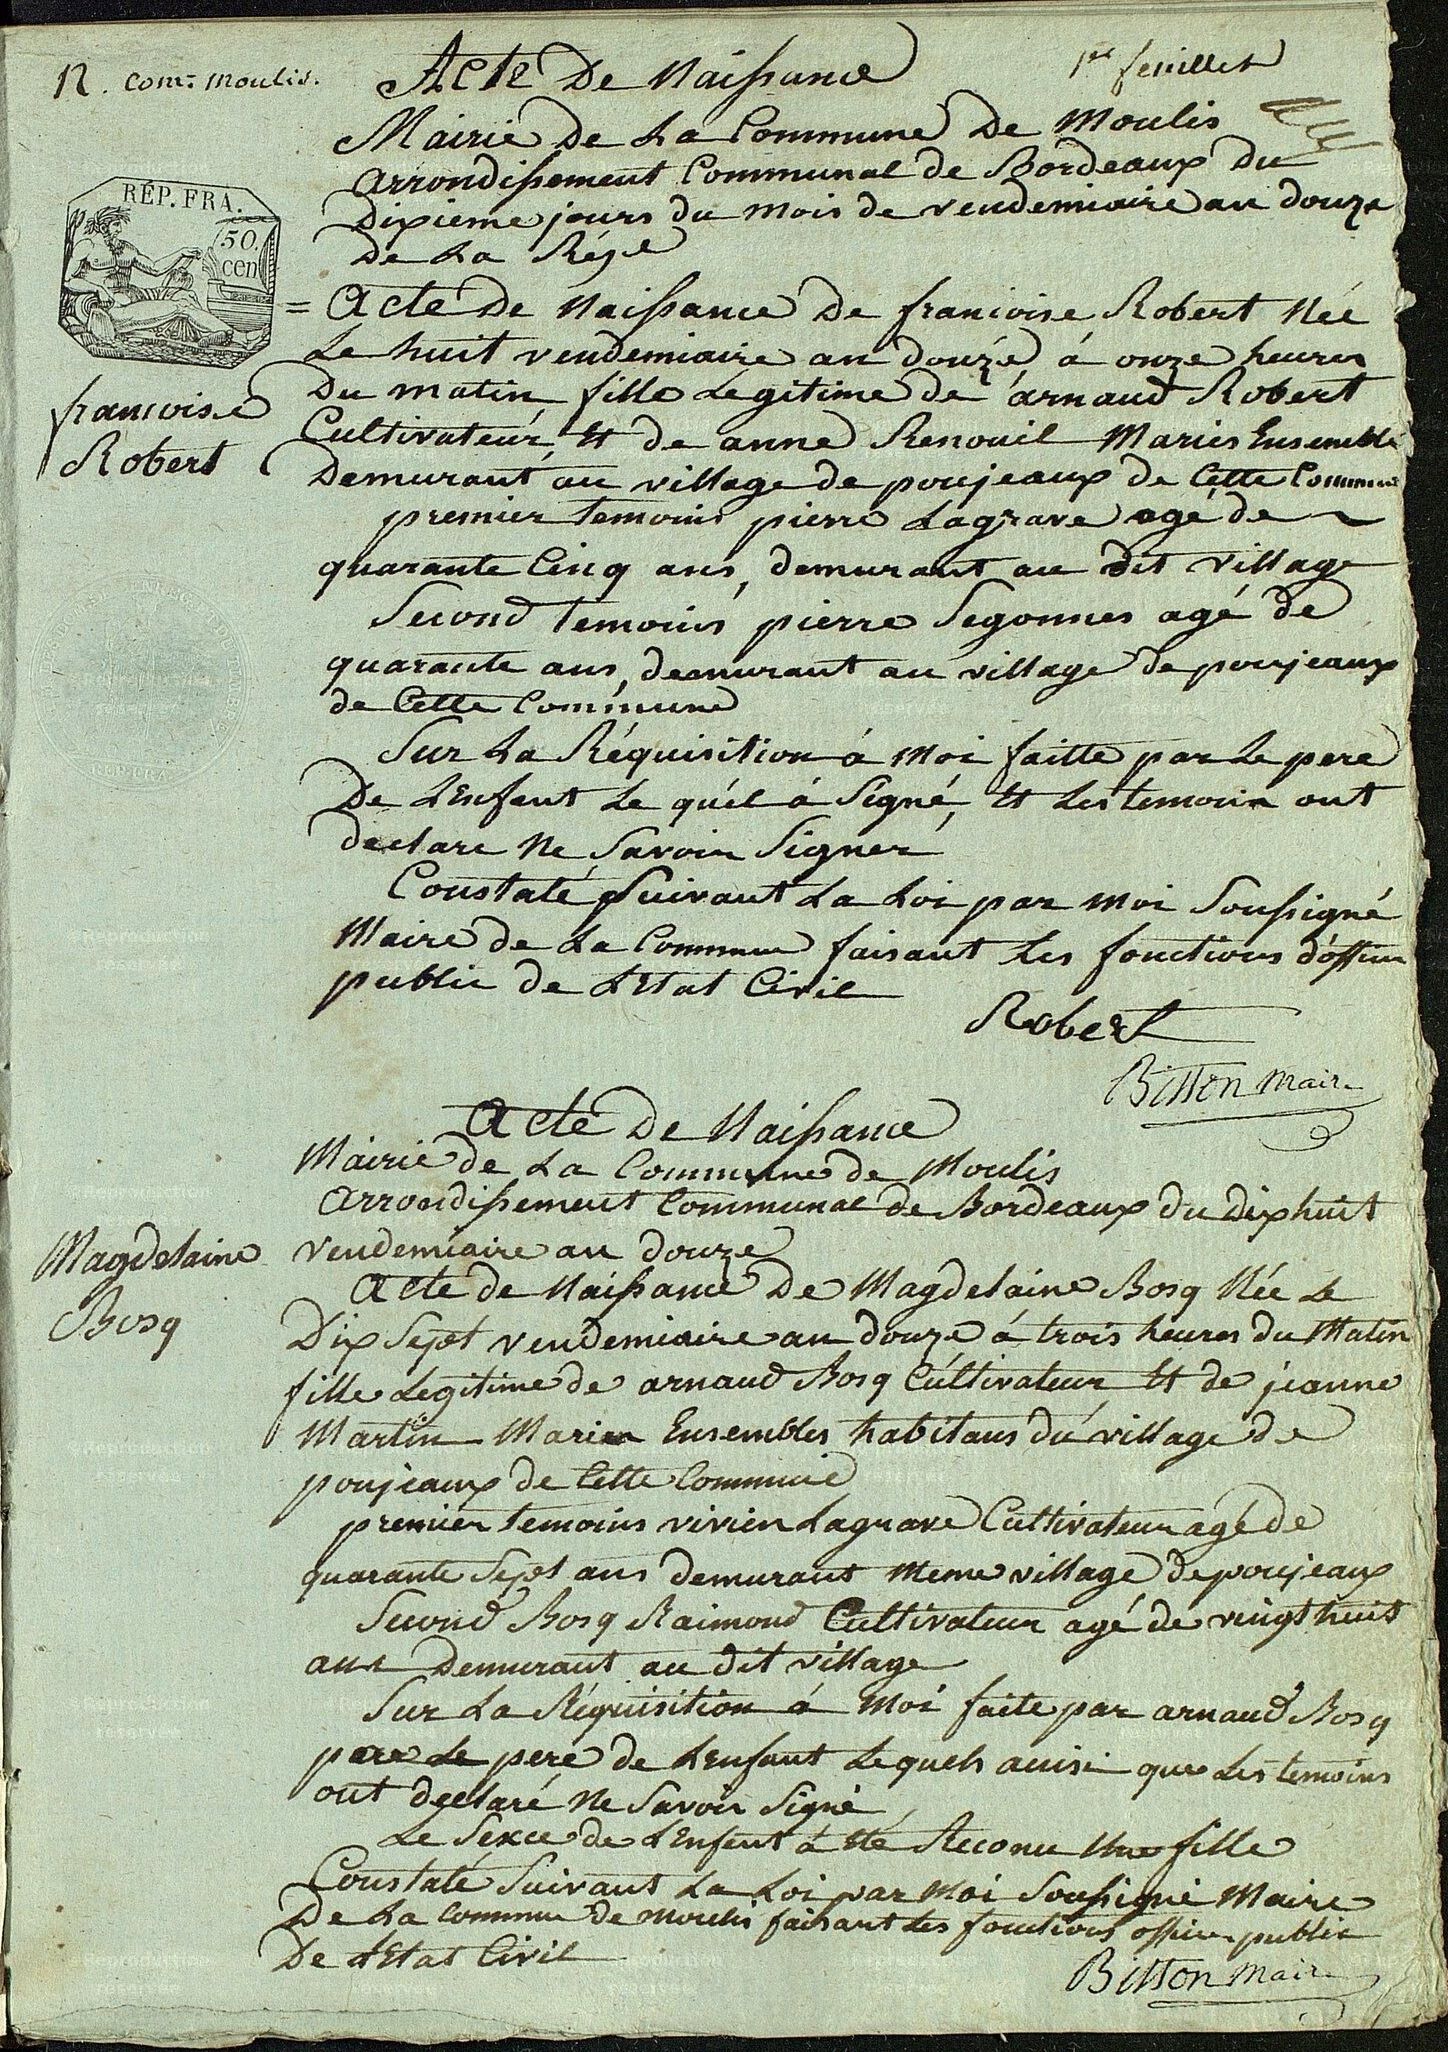 N. Com.ne Moulis.
Acte De Naissance
1er feuillet
Mairie de La Commune De Moulis
arrondissement Communal de Bordeaux Du
Dixieme jours du mois de vendemiaire an douze
De La Rép.e
RÉP. FRA.
50.
cen
= Acte De Naissance De francoise Robert Née
Le huit vendemiaire an douze, á onze heures
Du matin, fille Legitime de arnaud Robert
Cultivateur, Et de anne Renouil Maries Ensemble
Demurant au village de poujeaux de Cette Commune
francoise
Robert
premier temoins pierre Lagrave agé de
quarante Cinq ans, demurant au dit village
Second temoins pierre Segonnes agé de
quarante ans, demurant au village de poujeaux
de Cette Commune
Sur La Réquisition á Moi faitte par Le pere
De L'Enfent Le quél á Signé, Et Les temoin ont
declare Ne Savoir Signer
Constaté Suivant La Loi par Moi Soussigné
Maire de La Commune faisant Les fonctions d'officier
public de L'Etat Civil
Robert
Bitton Maire
Acte De Naissance
Mairie de La Commune de Moulis
arrondissement Communal de Bordeaux du dix huit
vendemiaire an douze
Magdelaine
Bosq
Acte de Naissance De Magdelaine Bosq Née Le
Dix Sept vendemiaire an douze á trois heures du Matin
fille Legitime de arnaud Bosq Cultivateur Et de jeanne
Martin Maries Ensembles habitans du village de
poujeaux de Cette Commune
premier temoins vivien Lagrave Cultivateur agé de
quarante Sept ans demurant meme village de poujeaux
Second Bosq Raimond Cultivateur agé de vingt huit
ans Demurant au dit village
Sur La Réquisition á Moi faite par arnaud Bosq
pere de L'Enfant Lequels ainsi que Les temoins
ont declaré Ne Savoir Signé,
Le Sexce de L'Enfent á été Reconu Une fille
Constaté Suivant La Loi par Moi Soussigné Maire
De La Commune de Moulis faisant Les fonctions officier public
De L'Etat Civil
Bitton Maire